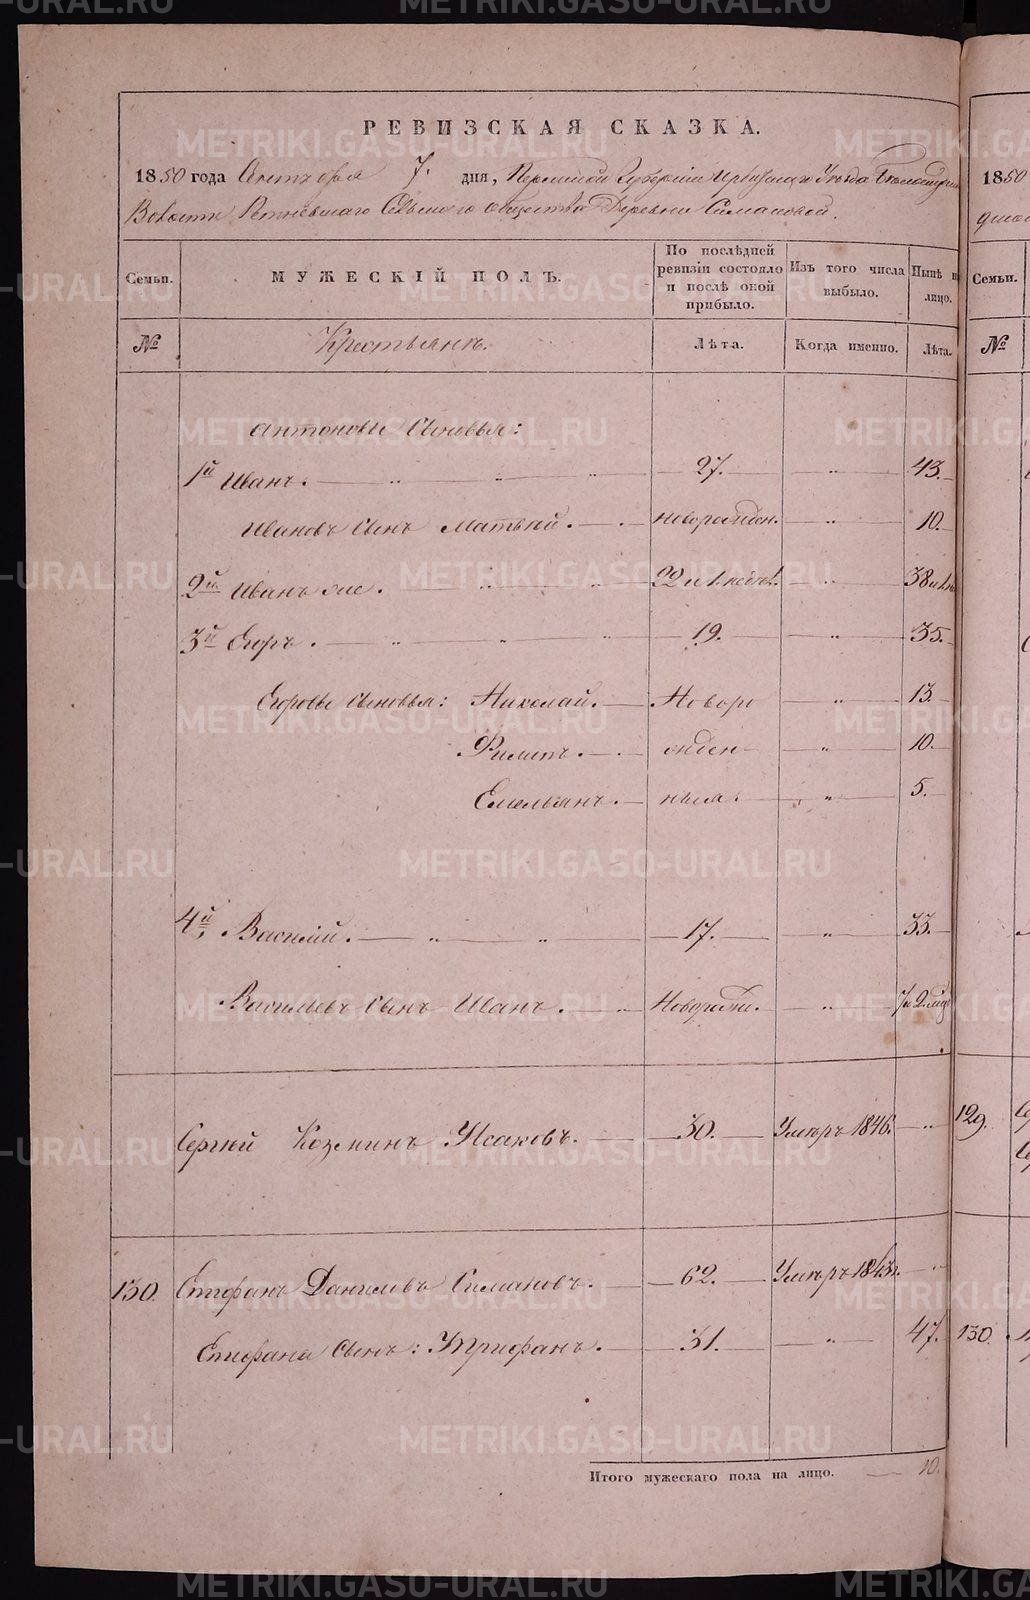 РЕВИЗСКАЯ СКАЗКА.
1850 года Сентября 7. дня, Пермской Губернии Ирбитскаго Уезда
Волости Ретневскаго Сельскаго общества Деревни Симановой.
Семьи.
МУЖЕСКІЙ ПОЛЪ.
По послѣдней ревизіи состояло и послѣ оной прибыло.
Изъ того числа выбыло.
Нынѣ на лицо.
№
Крестьянъ.
Лѣта.
Когда именно.
Лѣта.
Антоновы Сыновья:
1й Иванъ. 27. 43.
Ивановъ Сынъ Матвѣй. новорожден. 10.
2й Иванъ же. 22 и 1. недѣл. 38
3й Егоръ. 19. 35.
Егоровы Сыновья: Николай. Новоро 13.
Филипъ. жден 10.
Емельянъ. ныя. 5.
4й Василій. 17. 33.
Васильевъ Сынъ Иванъ. Новорожд.
Сергѣй Козминъ Усаковъ. 30. Умеръ 1846.
130. Епифанъ Даниловъ Симановъ. 62. Умеръ 1843.
Епифана Сынъ: Трифанъ. 31. 47.
Итого мужескаго пола на лицо. 10.
1850
Семьи.
№
129.
130.
METRIKI.GASO-URAL.RU